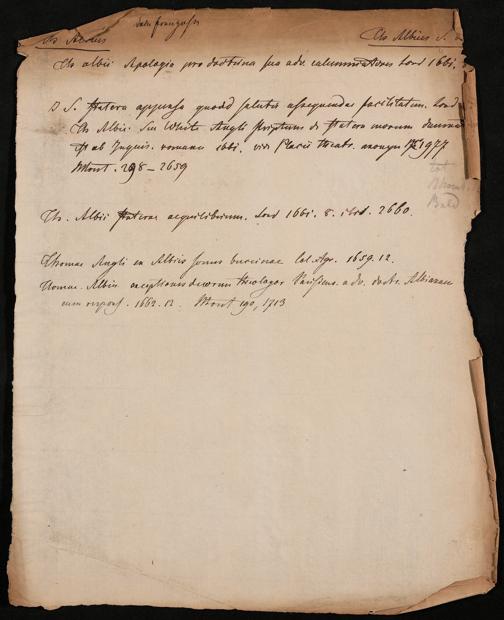 Th Albius
Th Albius S.
Th albii Apologia pro doctrina sua adv. calumniatores Lond 1661.
S. Statera appensa quoad salutis assequendae facilitatem. Lond
Th Albii. Seu White Angli Scriptum de Statera morum
ab Inquis. romana ibbi. vid Placii theatr. anonym 1977
Mont. 298 – 2659
Th. Albii Staterae aequilibrium. Lond 1661. 8. ibid. 2660.
Thomas Angli ex Albiis sonus buccinae Col. Agr. 1659. 12.
Thomae Albii exceptiones duorum theologor Parisiens. adv. doctr. Albianam
cum respons. 1662. 12. Mont 190, 1713